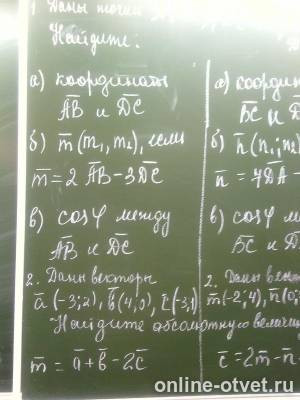 1. Даны точки
Найдите:
а) координаты
AB и DC
б) m(m₁, m₂), если
m=2 AB-3DC
в) cosφ между
AB и DC
2. Даны векторы
a(-3;2), b(4;0), c(-3,1)
Найдите абсолютную величи
m = a+b-2c
а) коорди
BC и
б) n(n₁;n₂
n = 4DA -
в) cosφ
BC и D
2. Даны век
m(-2;4), n(0;
c=2m-n-
online-otvet.ru